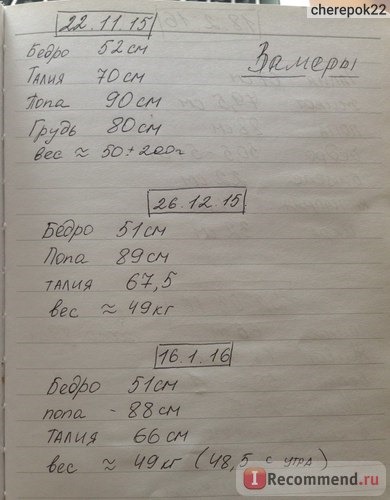 cherepok22
22.11.15
Бедро 52см
Замеры
Талия 70см
Попа 90см
Грудь 80см
вес ≈ 50±200г
26.12.15
Бедро 51см
Попа 89см
талия 67,5
вес ≈ 49кг
16.1.16
Бедро 51см
попа - 88см
талия 66см
вес ≈ 49кг (48,5 с утра)
I Recommend.ru